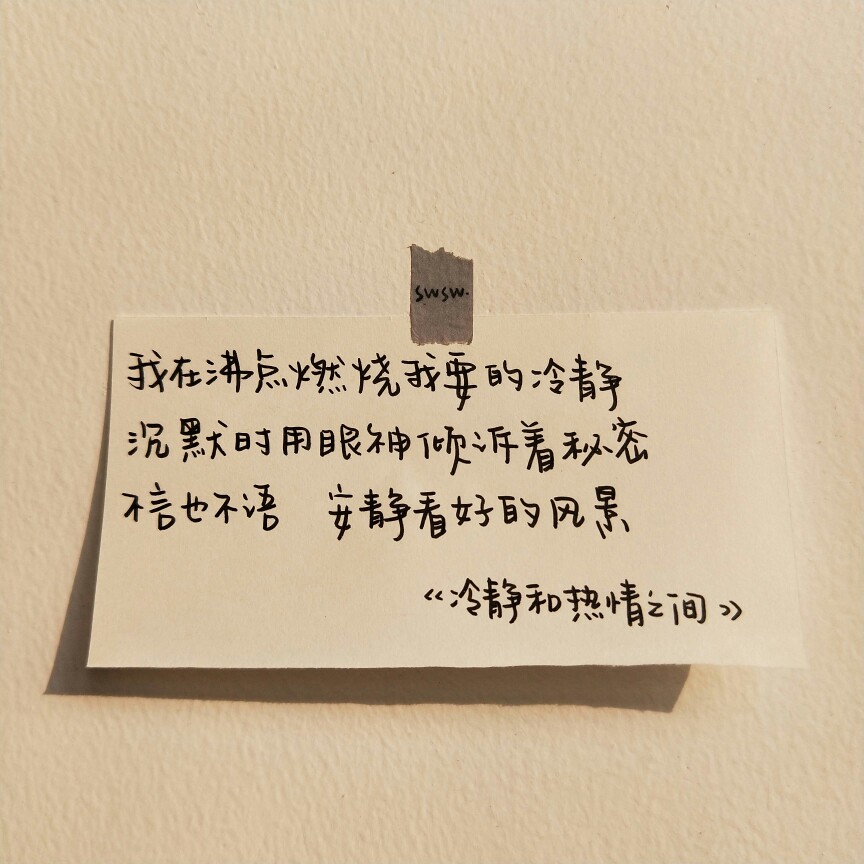 swsw.
我在沸点燃烧我要的冷静
沉默时用眼神倾诉着秘密
不言也不语　安静看好的风景
《冷静和热情之间》